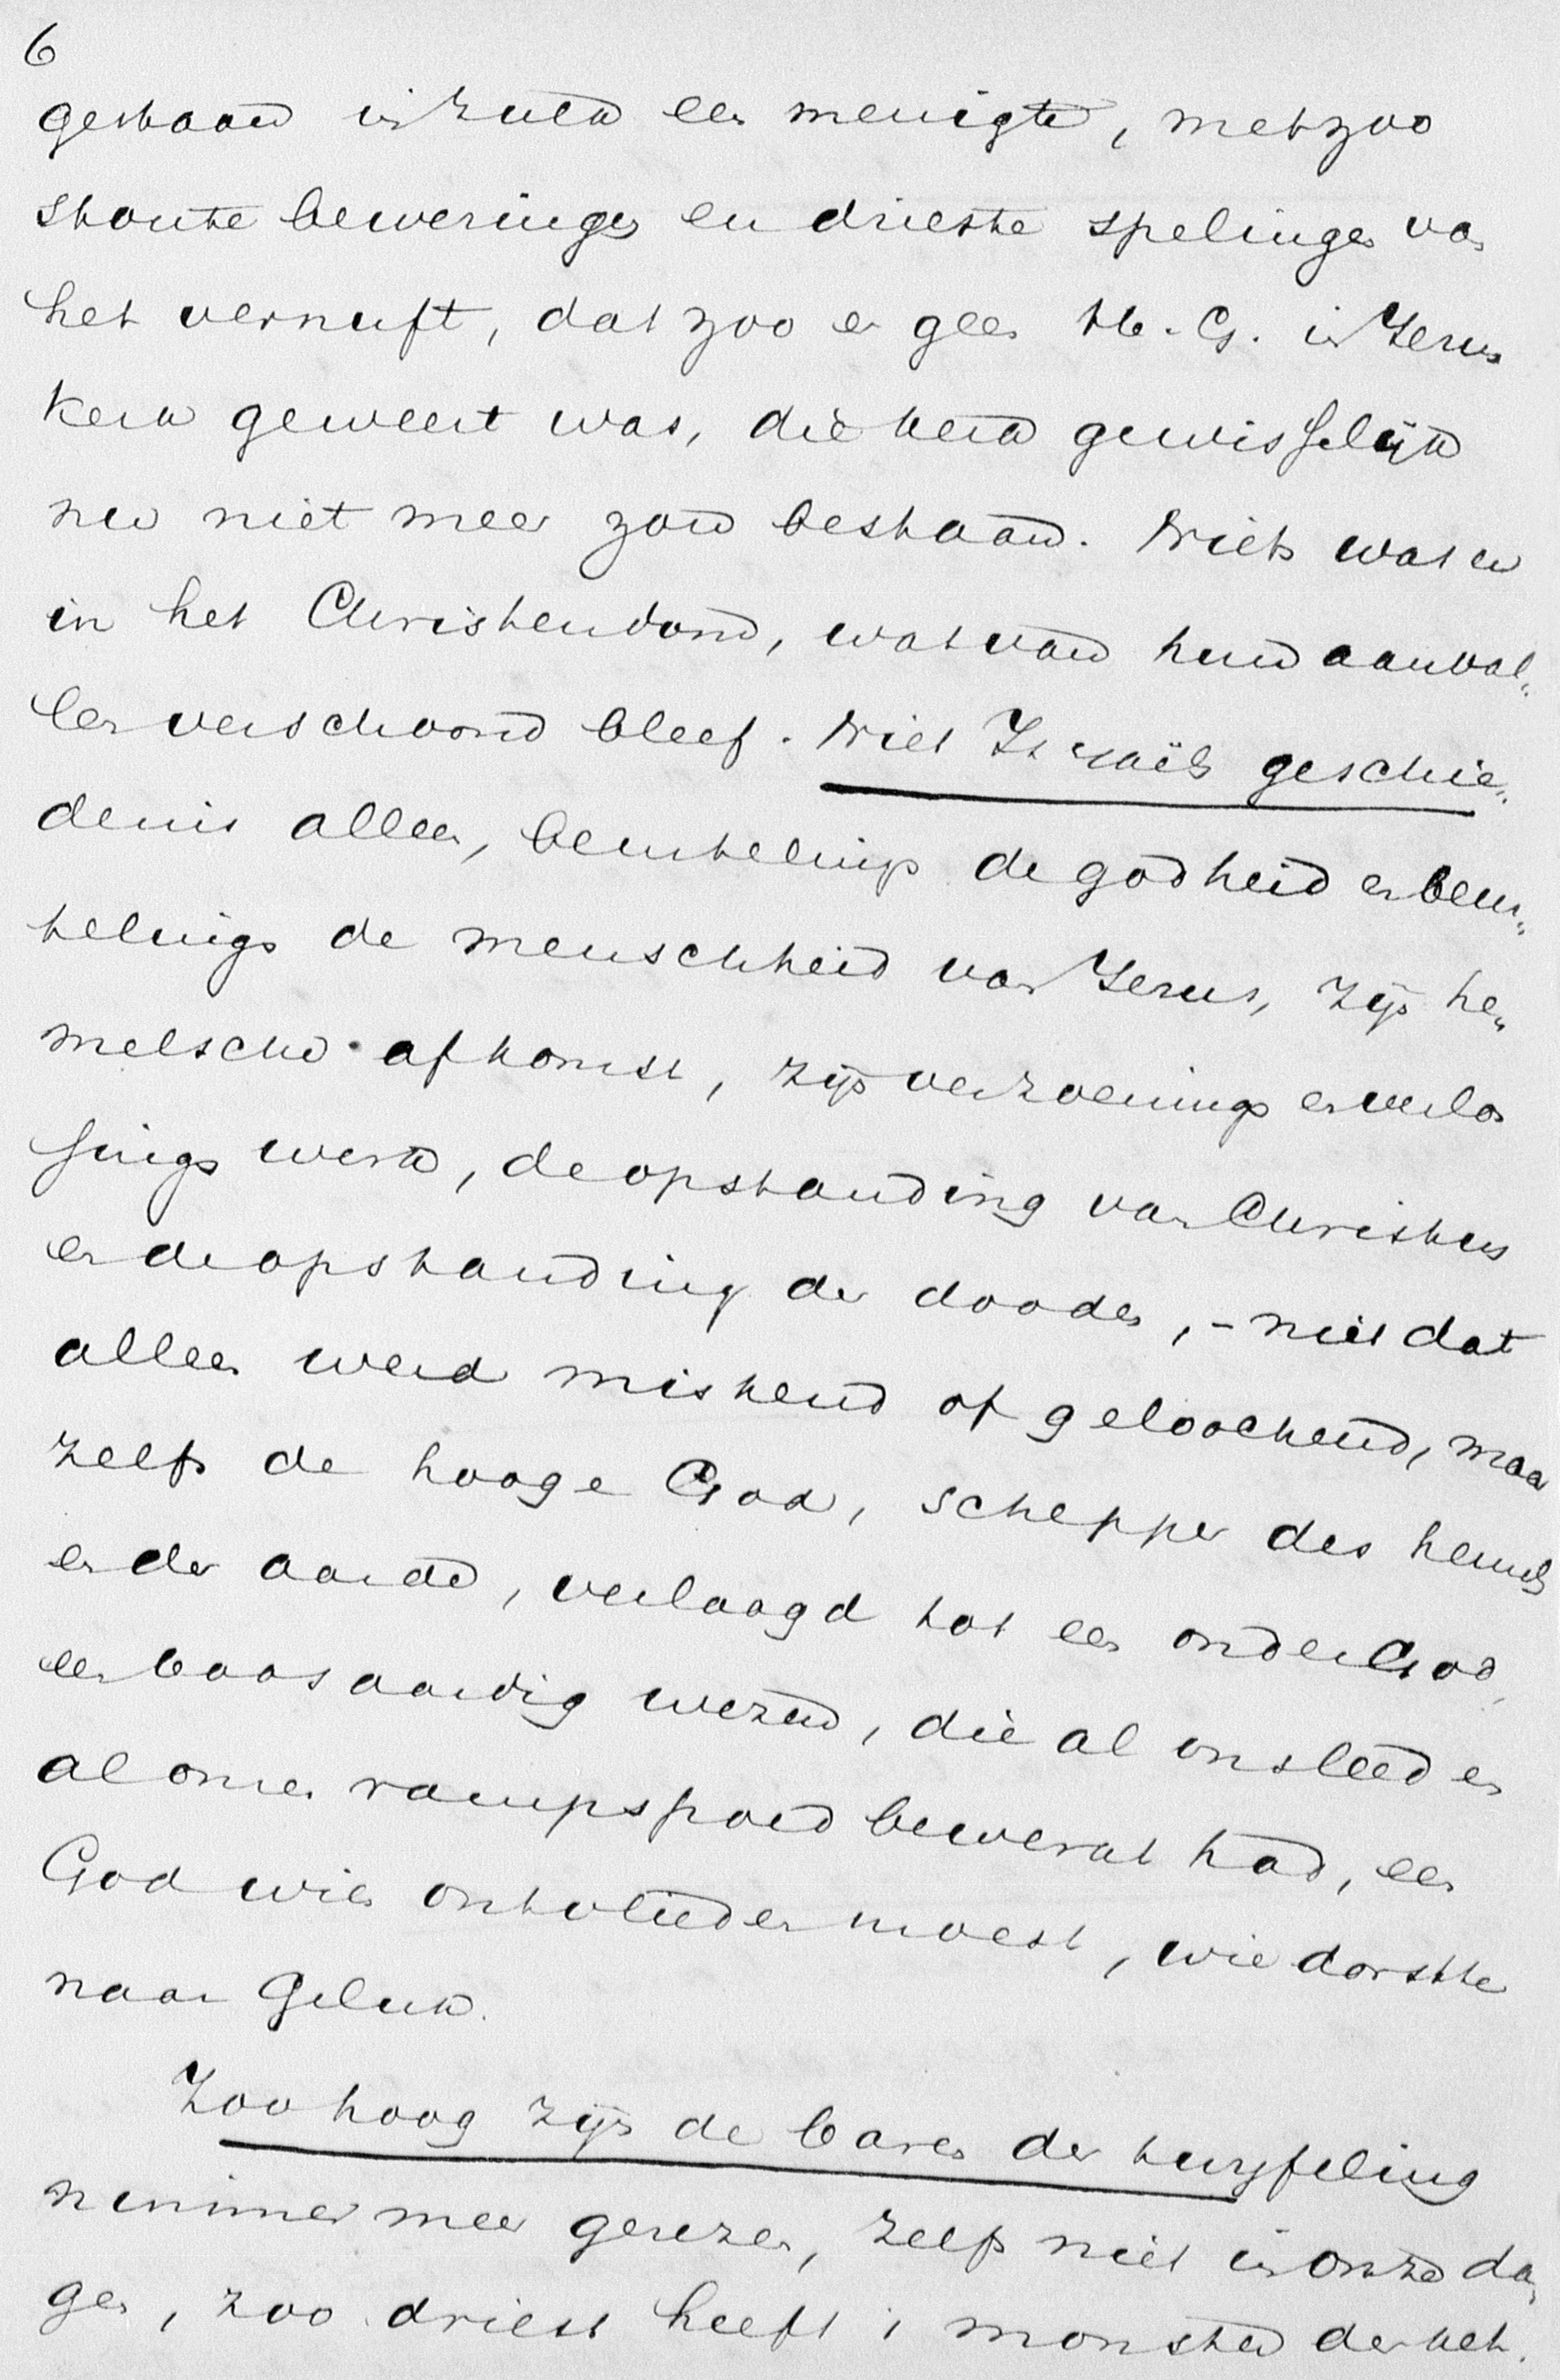 6
gestaan in zulk een menigte, met zoo
stoute beweringen en drieste spelingen van
het vernuft, dat zoo er geen H. G. in Jezus
kerk geweest was, die kerk gewisselijk
nu niet meer zou bestaan. Niets was er
in het Christendom, wat van hun aanval„
len verschoond bleef. Niet Israëls geschie„
denis alleen, beurtelings de godheid en beur„
telings de menschheid van Jezus, zijn he„
melsche afkomst, zijn verzoenings en verlos
sings werk, de opstanding van Christus
en de opstanding der dooden, – niet dat
alleen werd miskend of geloochend, maar
zelfs de hooge God, schepper des hemels
en der aarde, verlaagd tot een onderGod,
een boosaardig wezen, die al ons leed en
al onzen rampspoed bewerkt had, een
God wien ontvlieden moest, wie dorstte
naar Geluk.
Zoo hoog zijn de baren der twijfeling
nimmer meer gerezen, zelfs niet in onze da„
gen, zoo driest heeft 't monster der ket„